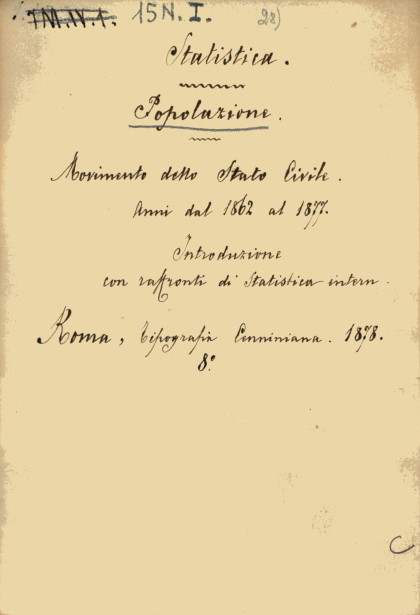 1M.IV.1. 15N.I. 22)
Statistica.
Popolazione.
Movimento dello Stato Civile.
Anni dal 1862 al 1877.
Introduzione
con raffronti di Statistica intern.
Roma, Tipografia Cenniniana. 1878.
8.º
C